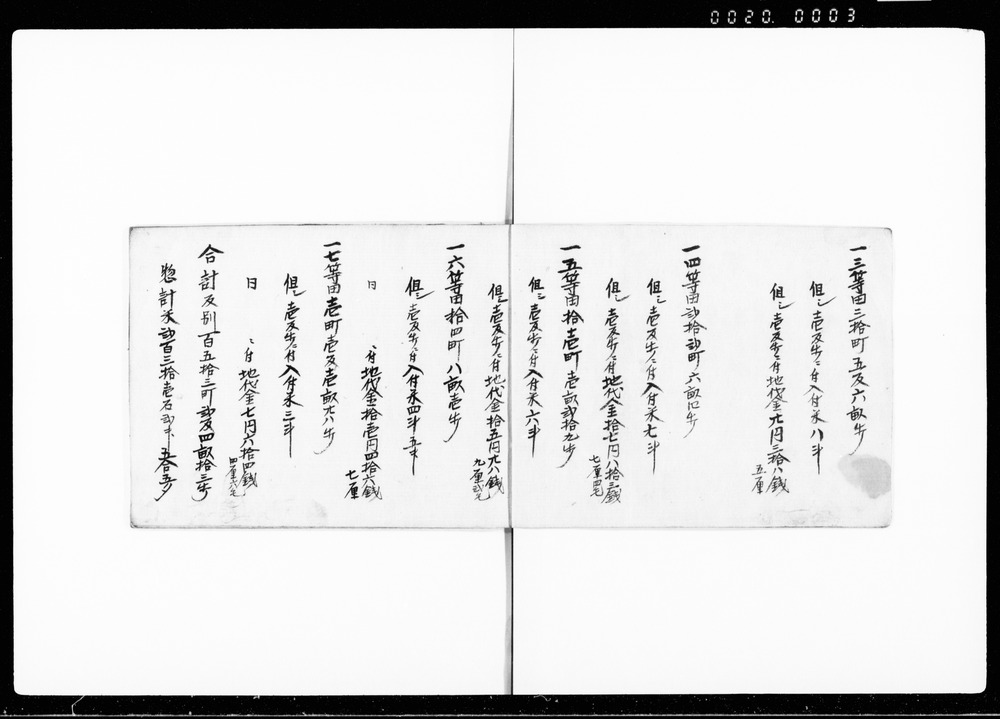 0020. 0003
一三等田三拾町五反六畝歩
但シ壱反歩ニ付入付米八斗
但シ壱反歩ニ付地代金廿円三拾八銭
五厘
一四等田弐拾弐町六畝廿歩
但シ壱反歩ニ付入付米七斗
但シ壱反歩ニ付地代金拾七円八拾三銭
七厘四毛
一五等田拾壱町壱畝弐拾九歩
但シ壱反歩ニ付入付米六斗
但シ壱反歩ニ付地代金拾五円廿八銭
九厘弐毛
一六等田拾四町八畝壱歩
但シ壱反歩ニ付入付米四斗五升
同 ニ付地代金拾壱円四拾六銭
七厘
一七等田壱町壱反壱畝廿八歩
但シ壱反歩ニ付入付米三斗
同 ニ付地代金七円六拾四銭
四厘六毛
合計反別百五拾三町弐反四畝拾三歩
惣計米弐百三拾壱石 五合五勺